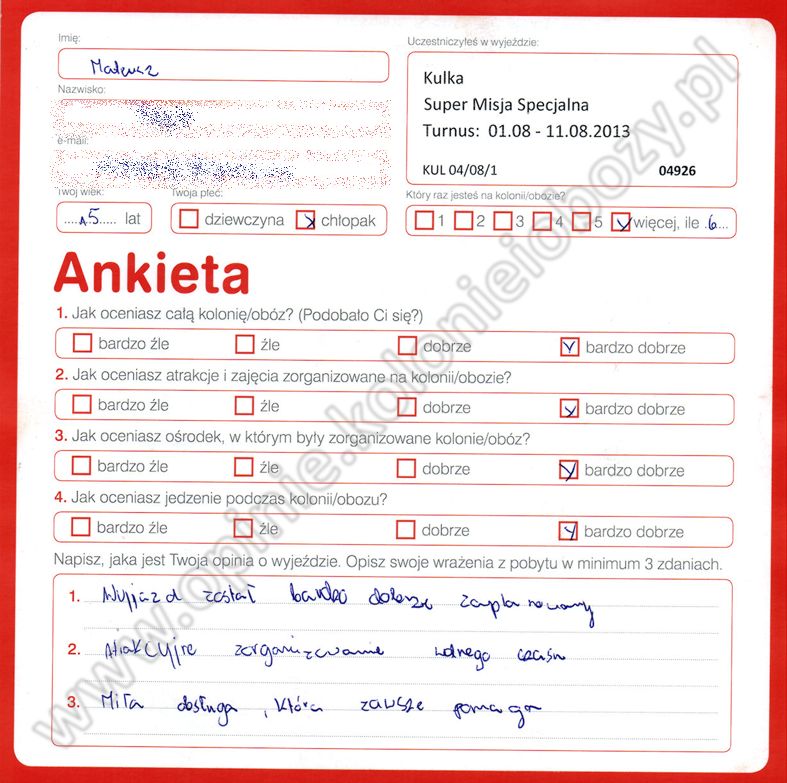 Imię:
Mateusz
Uczestniczyłeś w wyjeździe:
Kulka
Super Misja Specjalna
Turnus: 01.08 - 11.08.2013
KUL 04/08/1 04926
Nazwisko:
e-mail:
Twój wiek:
15 lat
Twoja płeć:
dziewczyna chłopak
Który raz jesteś na kolonii/obozie?
1 2 3 4 5 więcej, ile 6
Ankieta
1. Jak oceniasz całą kolonię/obóz? (Podobało Ci się?)
bardzo źle źle dobrze bardzo dobrze
2. Jak oceniasz atrakcje i zajęcia zorganizowane na kolonii/obozie?
bardzo źle źle dobrze bardzo dobrze
3. Jak oceniasz ośrodek, w którym były zorganizowane kolonie/obóz?
bardzo źle źle dobrze bardzo dobrze
4. Jak oceniasz jedzenie podczas kolonii/obozu?
bardzo źle źle dobrze bardzo dobrze
Napisz, jaka jest Twoja opinia o wyjeździe. Opisz swoje wrażenia z pobytu w minimum 3 zdaniach.
1. Wyjazd został bardzo dobrze zaplanowany
2. Atrakcyjne zorganizowanie wolnego czasu
3. Miła obsługa, która zawsze pomaga
www.opinie.kolonieiobozy.pl